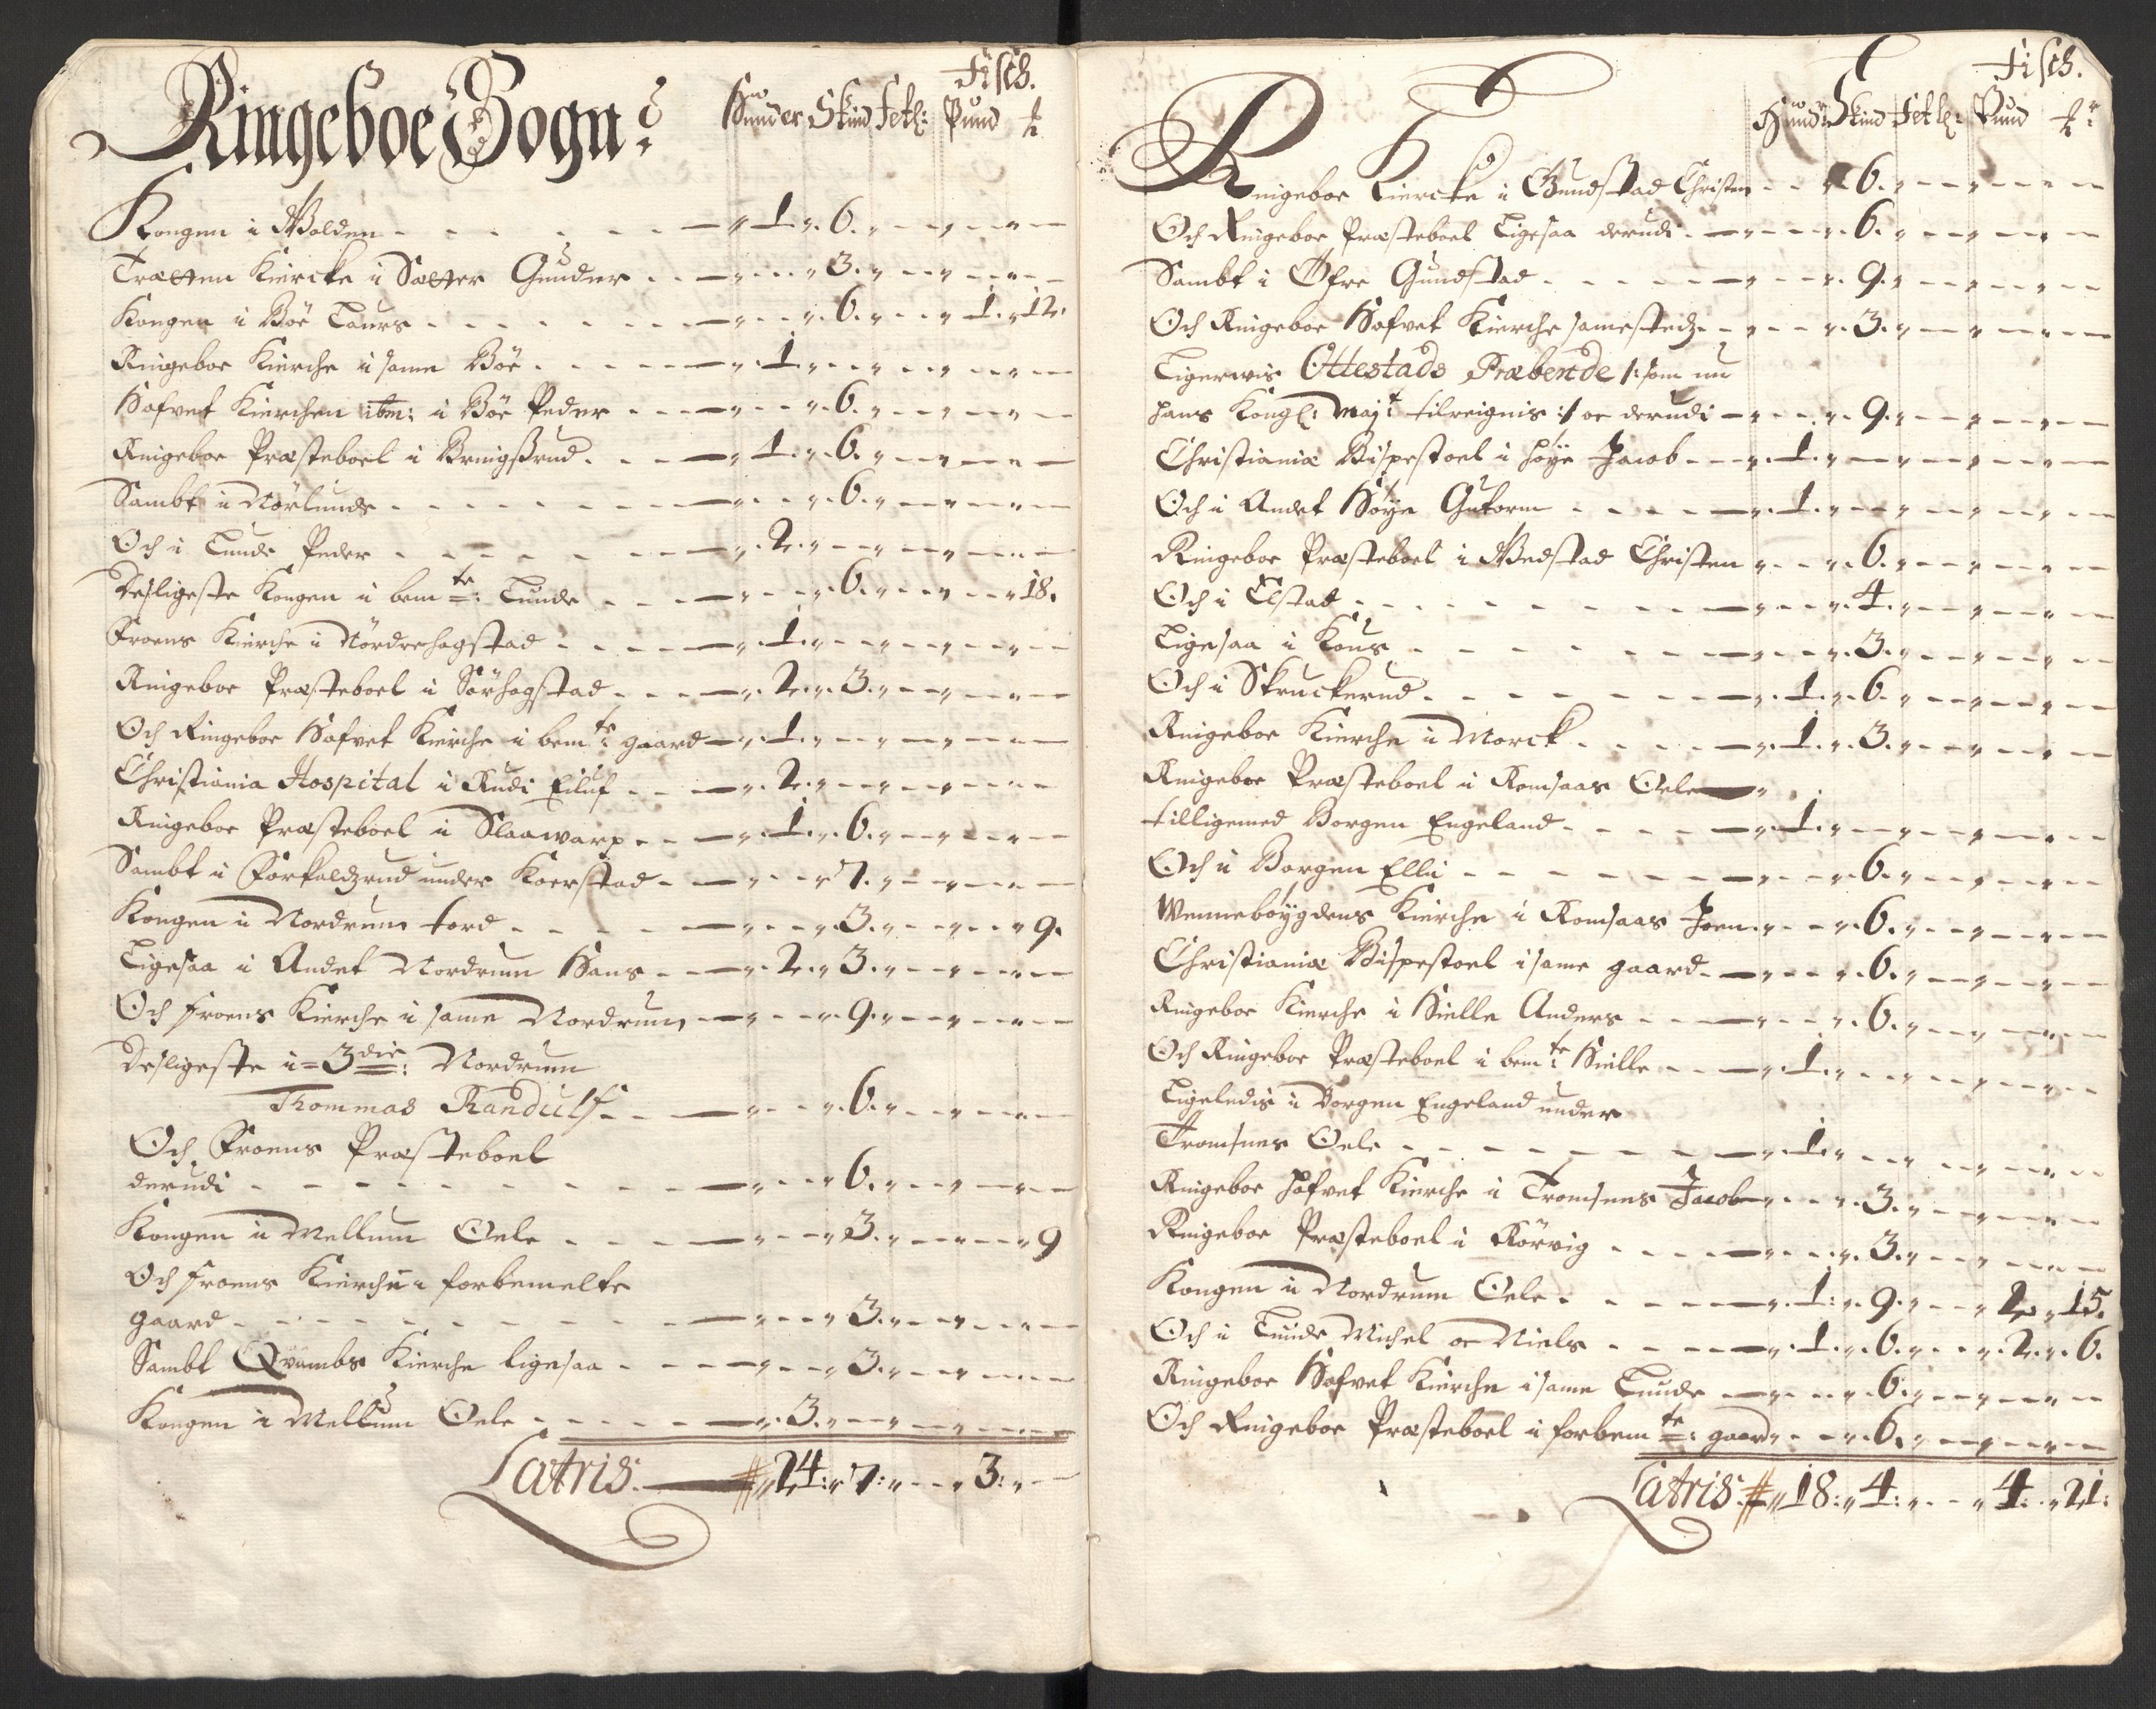 Fisch.
Ringeboe Sogn:
Hunder Skind Fetl: Pund
Kongen i Wolden - - - " 1. " 6. " - - " - - " - -
Trætten Kiercke i Sætter Gunder - - - " - - " 3. " - - " - - " - -
Kongen i Böe Laurs - - - " - - " 6. " - - " 1. " 12.
Ringeboe Kierche i same Böe - - - " 1. " - - " - - " - - " - -
Hofvet Kierchen ibm: i Böe Peder - - - " - - " 6. " - - " - - " - -
Ringeboe Præsteboel i Bringßrud - - - " 1. " 6. " - - " - - " - -
Sambt i Nörlunde - - - " - - " 6. " - - " - - " - -
Och i Lunde Peder - - - " 2. " - - " - - " - - " - -
Desligeste Kongen i bemte: Lunde - - - " - - " 6. " - - " - - " 18.
Froens Kierche i Nördrehagstad - - - " 1. " - - " - - " - - " - -
Ringeboe Præsteboel i Sörhagstad - - - " 2. " 3. " - - " - - " - -
Och Ringeboe Hofvet Kierche i bemte: gaard - " 1. " - - " - - " - - " - -
Christiania Hospital i Rudi Eiluf - - - " 2. " - - " - - " - - " - -
Ringeboe Præsteboel i Slaawarp - - - " 1. " 6. " - - " - - " - -
Sambt i Forkaldzrud under Koerstad - - - " - - " 7. " - - " - - " - -
Kongen i Nordrum tord - - - " - - " 3. " - - " - - " 9.
Ligesaa i Andet Nordrum Hans - - - " 2. " 3. " - - " - - " - -
Och Froens Kierche i same Nordrum - " - - " 9. " - - " - - " - -
Desligeste i = 3die: Nordrum
Thommas Randulf - - - " - - " 6. " - - " - - " - -
Och Froens Præsteboel
derudi - - - " - - " 6. " - - " - - " - -
Kongen i Mellum Oele - - - " - - " 3. " - - " - - " 9
Och Froens Kierche i forbemelte
gaard - - - " - - " 3. " - - " - - " - -
Sambt Qvambs Kierche ligesaa - - - " - - " 3. " - - " - - " - -
Kongen i Mellum Oele - - - " 3. " - - " - - " - - " - -
Latris. # " 24: " 7: " - - " 3: " - -
Fisch.
Hund: Skind Fetl: Pund
Ringeboe Kiercke i Gundstad Christen - - " 6. " - - " - - " - -
Och Ringeboe Præsteboel Ligesaa derudi - " - - " 6. " - - " - - " - -
Sambt i Öfre Gundstad - - - " - - " 9. " - - " - - " - -
Och Ringeboe Hofvet Kierche samestedz - " - - " 3. " - - " - - " - -
Ligerwis Ottestads Præbende /: som nu
hans Kongl: Majt: tilreignis :/ oe derudi - " - - " 9. " - - " - - " - -
Christianiæ Bispestoel i Höye Jacob - - " 1. " - - " - - " - - " - -
Och i Andet Höye Gutorm - - - " 1. " - - " - - " - - " - -
Ringeboe Præsteboel i Wedstad Christen " - - " 6. " - - " - - " - -
Och i Elstad - - - " - - " 4. " - - " - - " - -
Ligesaa i Kous - - - " - - " 3. " - - " - - " - -
Och i Skruckerud - - - " 1. " 6. " - - " - - " - -
Ringeboe Kierche i Morck - - - " 1. " 3. " - - " - - " - -
Ringeboe Præsteboel i Romsaas Oele
tilligemed Borgen Engeland - - - " 1. " - - " - - " - - " - -
Och i Borgen Elli - - - " - - " 6. " - - " - - " - -
Wenneböygdens Kierche i Romsaas Joen " - - " 6. " - - " - - " - -
Christianiæ Bispestoel i same gaard - " - - " 6. " - - " - - " - -
Ringeboe Kierche i Hielle Anders - - - " - - " 6. " - - " - - " - -
Och Ringeboe Præsteboel i bemte: Hielle - - " 1. " - - " - - " - - " - -
Ligeledis i Borgen Engeland under
Tromsnes Oele - - - " 1. " - - " - - " - - " - -
Ringeboe Hofvet Kierche i Tromsnes Jacob " - - " 3. " - - " - - " - -
Ringeboe Præsteboel i Körvig - - - " - - " 3. " - - " - - " - -
Kongen i Nordrum Oele - - - " 1: " 9. " - - " 2. " 15.
Och i Lunde Michel oe Niels - - - " 1. " 6. " - - " 2. " 6.
Ringeboe Hofvet Kierche i same Lunde - " - - " 6. " - - " - - " - -
Och Ringeboe Præsteboel i forbemte: gaard " - - " 6. " - - " - - " - -
Latris # " 18: " 4: " - - " 4: " 21: